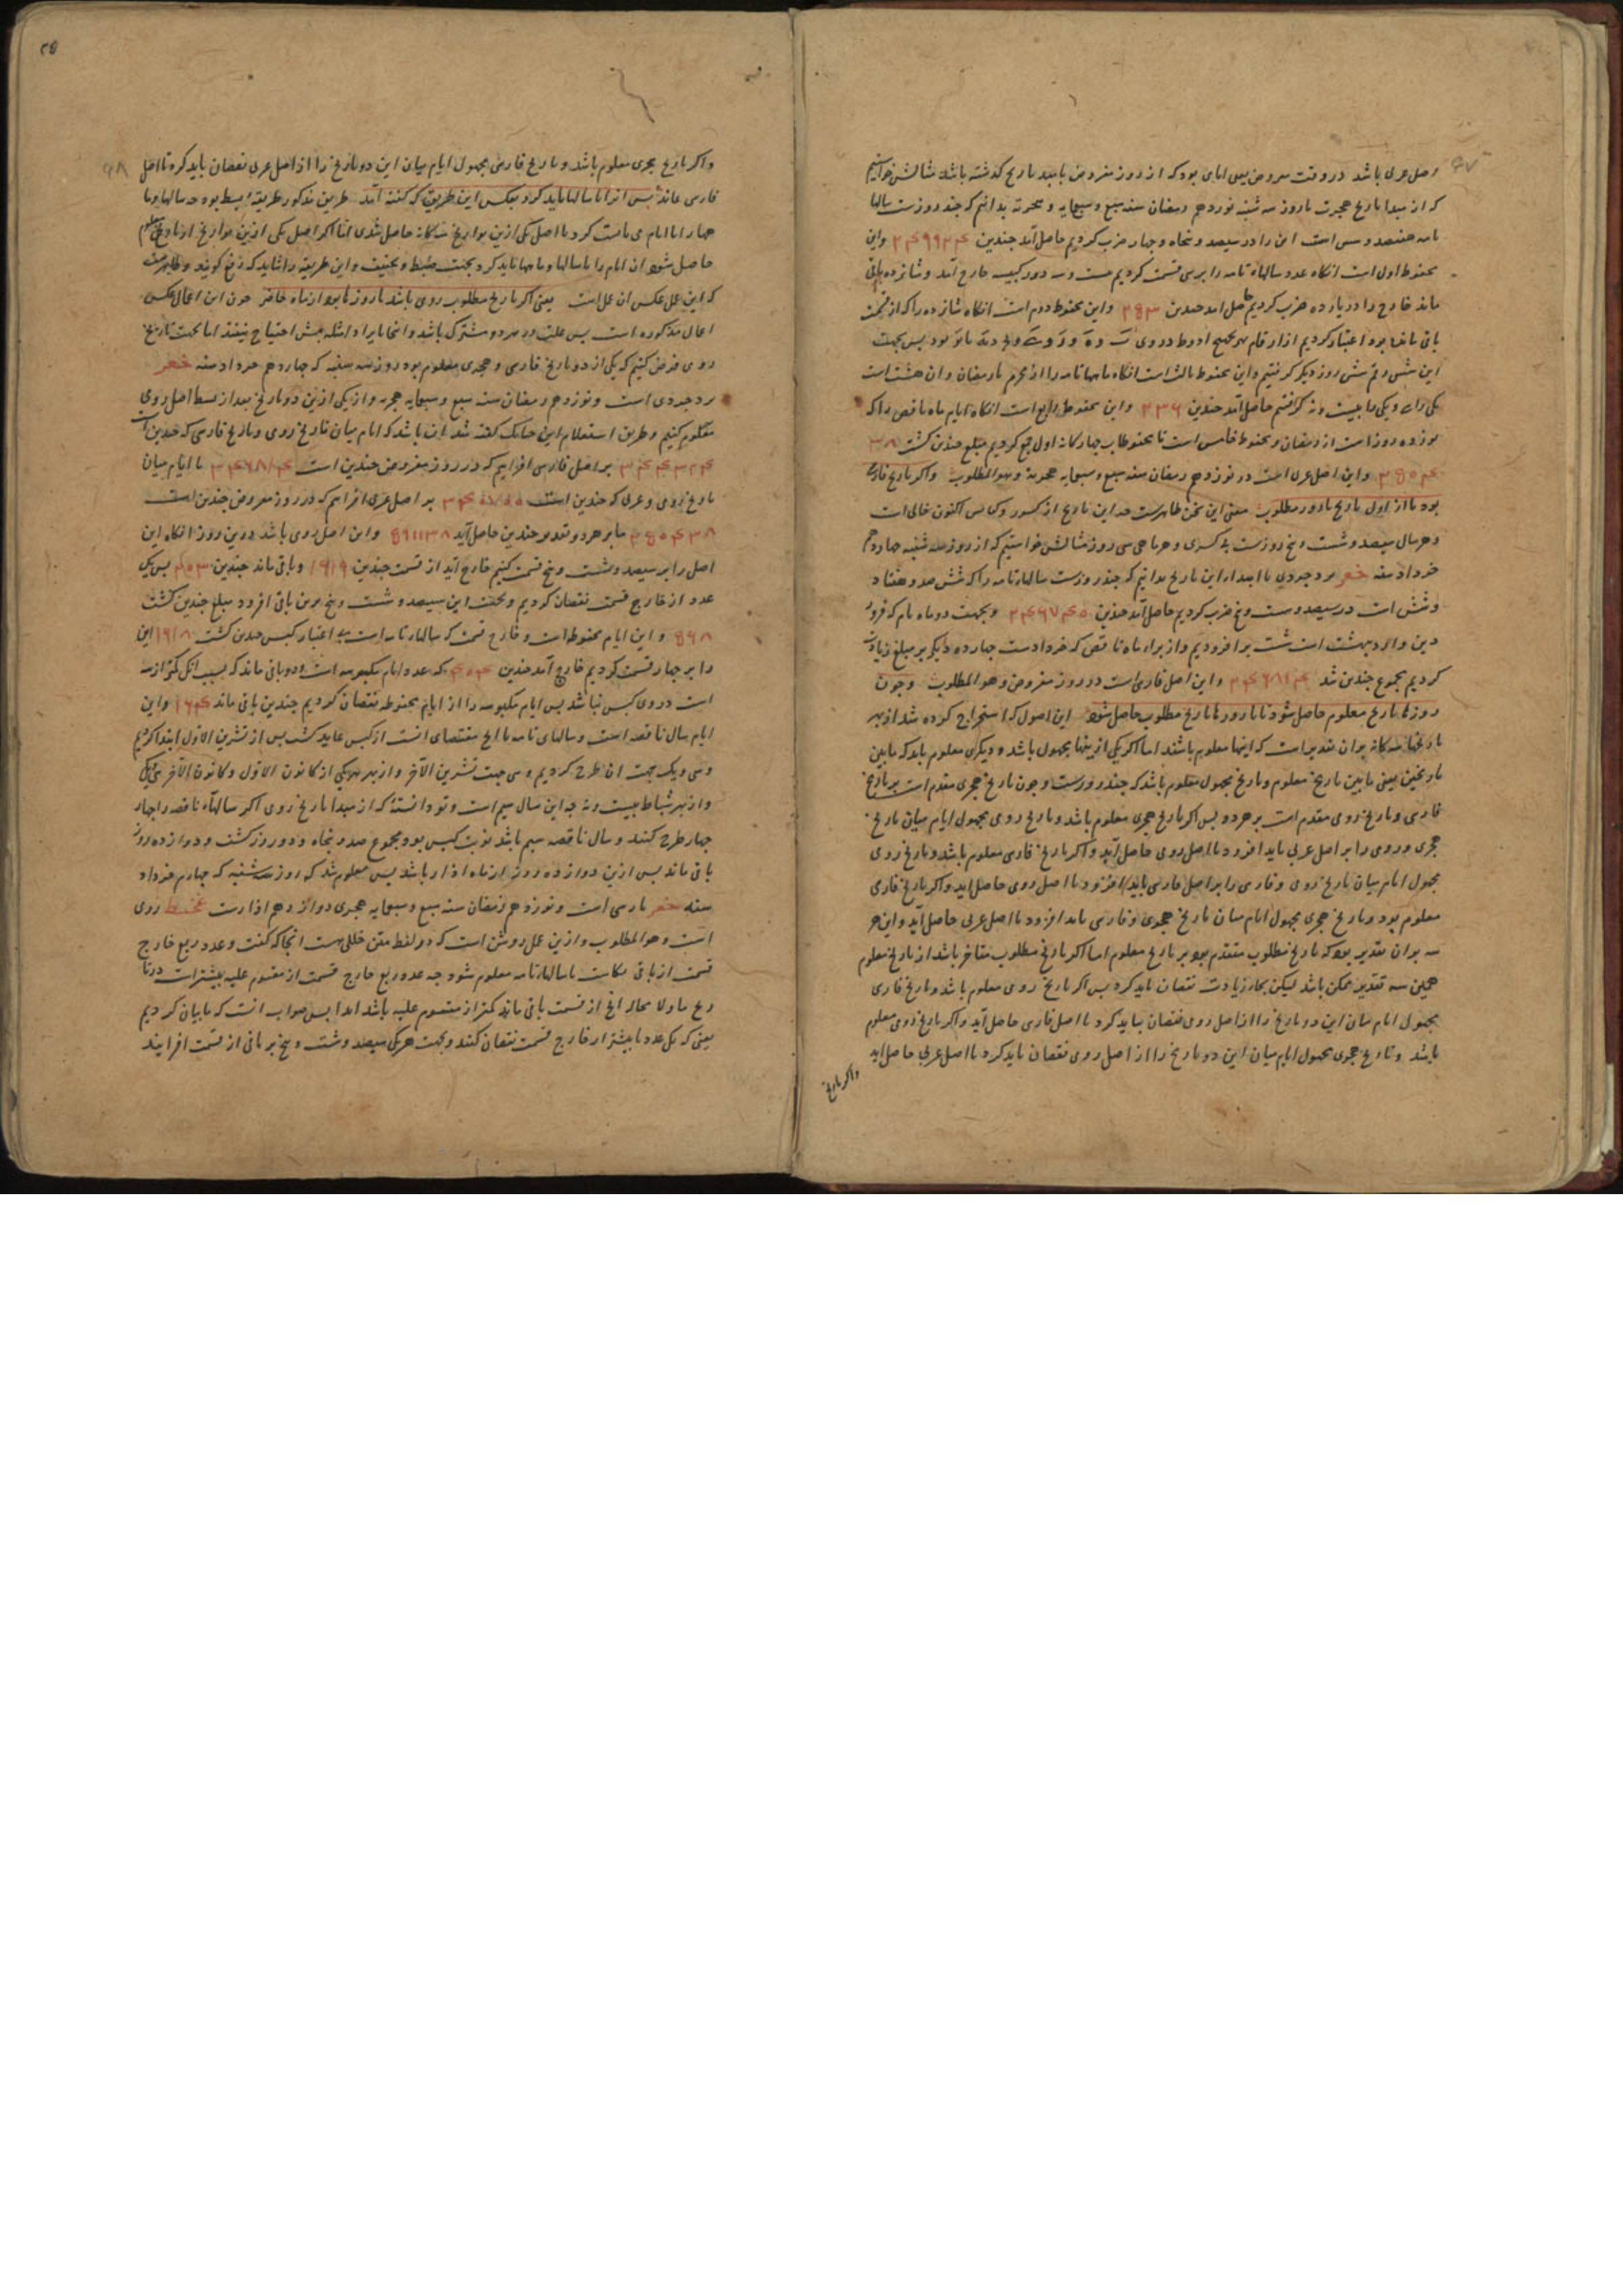 اصل عربی باشد در وقت مفروض یعنی ایامی بود که از روز مفروض تا مبدا تاریخ گذشته باشد مثالش خواستیم
که از مبدا تاریخ هجرت تا روز سه شنبه نوزدهم رمضان سنه سبع و سبعمایه هجریه بدانیم که چند روزست سالهاء
تامه هفتصد و شش است این را در سیصد و پنجاه و چهار ضرب کردیم حاصل آمد چندین ۲۴۹۹۲۴ واین
محفوظ اول است انکاه عدد سالهاء تامه را بر سی قسمت کردیم بیست و سه دور کبیسه خارج آمد و شانزده باقی
ماند خارج را در یازده ضرب کردیم حاصل آمد چندین ۲۵۳ واین محفوظ دوم است انکاه شانزده را که از قسمت
باقی مانده بود اعتبار کردیم از ارقام
این شش رقم شش روز دیکر کرفتیم واین محفوظ ثالث است انکاه ماههاء تامه را از محرم تا رمضان وان هشت است
یکی را سی و یکی را بیست و نه کرفتیم حاصل آمد چندین ۲۳۶ واین محفوظ رابع است انکاه ایام ماه ناقص را که
نوزده روز است از رمضان و محفوظ خامس است تا محفوظات چهارکانه اول جمع کردیم مبلغ چندین کشت ۳۸
۲۵۰۴ واین اصل عربی است در نوزدهم رمضان سنه سبع و سبعمایه هجریه وهو المطلوب واکر تاریخ فارسی
بود تا از اول تاریخ تا روز مطلوب معنی این سخن ظاهرست چه این تاریخ از کسور و کبایس اکنون خالی است
و هر سال سیصد و شصت و پنج روزست بی کسری و هر ماهی سی روز مثالش خواستیم که از روز سه شنبه چهاردهم
خرداد سنه خعر یزدجردی تا ابتداء این تاریخ بدانیم که چند روزست سالهاء تامه را که ششصد و هفتاد
و شش است در سیصد و شصت و پنج ضرب کردیم حاصل آمد چندین ۲۴۶۷۴۰ وبجهت دو ماه تام که فرور
دین و اردیبهشت است شصت بر افزودیم و از برای ماه ناقص که خردادست چهارده دیکر بر مبلغ زیادت
کردیم مجموع چندین شد ۲۴۶۸۱۴ واین اصل فارسی است در روز مفروض وهو المطلوب وچون
روزهاء تاریخ معلوم حاصل شود تا روزهاء تاریخ مطلوب حاصل شود این اصول که استخراج کرده شد از بهر
تاریخهاء سه کانه بران تقدیر است که اینها معلوم باشند اما اکر یکی ازینها مجهول باشد و دیکری معلوم باید که مابین
تاریخین یعنی مابین تاریخ معلوم و تاریخ مجهول معلوم باشد که چند روزست وچون تاریخ هجری مقدم است بر تاریخ
فارسی و تاریخ رومی مقدم است بر هر دو پس اکر تاریخ هجری معلوم باشد و تاریخ رومی مجهول ایام میان تاریخ
هجری و رومی را بر اصل عربی باید افزود تا اصل رومی حاصل آید واکر تاریخ فارسی معلوم باشد و تاریخ رومی
مجهول ایام میان تاریخ رومی و فارسی را بر اصل فارسی باید افزود تا اصل رومی حاصل اید واکر تاریخ فارسی
معلوم بود و تاریخ هجری مجهول ایام میان تاریخ هجری و فارسی باید افزود تا اصل عربی حاصل آید واین هر
سه بران تقدیر بود که تاریخ مطلوب متقدم بود بر تاریخ معلوم اما اکر تاریخ مطلوب متاخر باشد از تاریخ معلوم
همین سه تقدیر ممکن باشد لیکن بجای زیادت نقصان باید کرد پس اکر تاریخ رومی معلوم باشد و تاریخ فارسی
مجهول ایام میان این دو تاریخ را از اصل رومی نقصان باید کرد تا اصل فارسی حاصل آید واکر تاریخ رومی معلوم
باشد و تاریخ هجری مجهول ایام میان این دو تاریخ را از اصل رومی نقصان باید کرد تا اصل عربی حاصل اید
واکر تاریخ
واکر تاریخ هجری معلوم باشد و تاریخ فارسی مجهول ایام میان این دو تاریخ را از اصل عربی نقصان باید کرد تا اصل
فارسی بماند پس انرا با سالها باید کرد و بعکس این طریق که کفته آمد طریق مذکور طریقه بسط بود چه سالها و ما
هها را با ایام می بایست کرد تا اصل یکی ازین تواریخ سه کانه حاصل شدی اما اکر اصل یکی ازین تواریخ از تاریخ معلوم
حاصل شود ان ایام را با سالها و ماهها باید کرد بجهت ضبط و تخفیف واین طریقه را شاید که رفع کویند و ظاهرست
که این عمل عکس ان عمل است یعنی اکر تاریخ مطلوب رومی باشد تا روزها بود از ماه حاضر چون این اعمال عکس
اعمال مذکوره است پس علت در هر دو مشترک باشد و اینجا بایراد امثله بیش احتیاج نیفتد اما بجهت تاریخ
رومی فرض کنیم که یکی از دو تاریخ فارسی و هجری معلوم بود روز سه شنبه که چهاردهم خرداد سنه خعر
یزدجردی است و نوزدهم رمضان سنه سبع و سبعمایه هجریه و از یکی ازین دو تاریخ بعد از بسط اصل رومی
معلوم کنیم و طریق استعلام این چنانک کفته شد ان باشد که ایام میان تاریخ رومی و تاریخ فارسی که چندین است
۳۴۴۳۲۴ بر اصل فارسی افزاییم که در روز مفروض چندین است ۲۴۶۸۱۴ یا ایام میان
تاریخ رومی و عربی که چندین است ۳۴۰۷۰۰ بر اصل عربی افزاییم که در روز مفروض چندین است
۲۵۰۴۳۸ تا بر هر دو تقدیر چندین حاصل آید ۵۹۱۱۳۸ واین اصل رومی باشد درین روز انکاه این
اصل را بر سیصد و شصت و پنج قسمت کنیم خارج آید از قسمت چندین ۱۶۱۹ و باقی ماند چندین ۲۰۳ پس یک
عدد از خارج قسمت نقصان کردیم و بجهت این سیصد و شصت و پنج برین باقی افزود مبلغ چندین کشت
۵۶۸ واین ایام محفوظ است و خارج قسمت که سالهاء تامه است بی اعتبار کبس چندین کشت ۱۶۱۸ این
را بر چهار قسمت کردیم خارج آمد چندین ۴۰۴ که عدد ایام مکبوسه است و دو باقی ماند که بسبب انک کمتر از سه
است در وی کبس نباشد پس ایام مکبوسه را از ایام محفوظه نقصان کردیم چندین باقی ماند ۱۶۴ واین
ایام سال ناقصه است و سالهای تامه
و سی و یک جهت ان طرح کردیم و سی جهت تشرین الآخر و از بهر هر یکی از کانون الاول و کانون الآخر سی و یک
و از بهر شباط بیست و نه چه این سال سیم است و تو دانسته که از مبدا تاریخ رومی اکر سالهاء ناقصه را چهار
چهار طرح کنند و سال ناقصه سیم باشد نوبت کبس بود و مجموع صد و پنجاه و دو روز کشت و دوازده روز
باقی ماند پس ازین دوازده روز از ماه اذار باشد پس معلوم شد که روز سه شنبه که چهاردهم خرداد
سنه خعر پارسی است و نوزدهم رمضان سنه سبع و سبعمایه هجری دوازدهم اذارست غخیط رومی
است وهو المطلوب و ازین عمل روشن است که در لفظ متن خللی هست انجا که کفت و عدد ربع خارج
قسمت از باقی بکاست تا سالهاء تامه معلوم شود چه عدد ربع خارج قسمت از مقسوم علیه بیشترست
باقی ماند کمتر از مقسوم علیه باشد ابدا پس صواب انست که ما بیان کردیم
یعنی که یک عدد یا بیشتر از خارج قسمت نقصان کنند و بجهت هر یکی سیصد و شصت و پنج بر باقی از قسمت افزایند